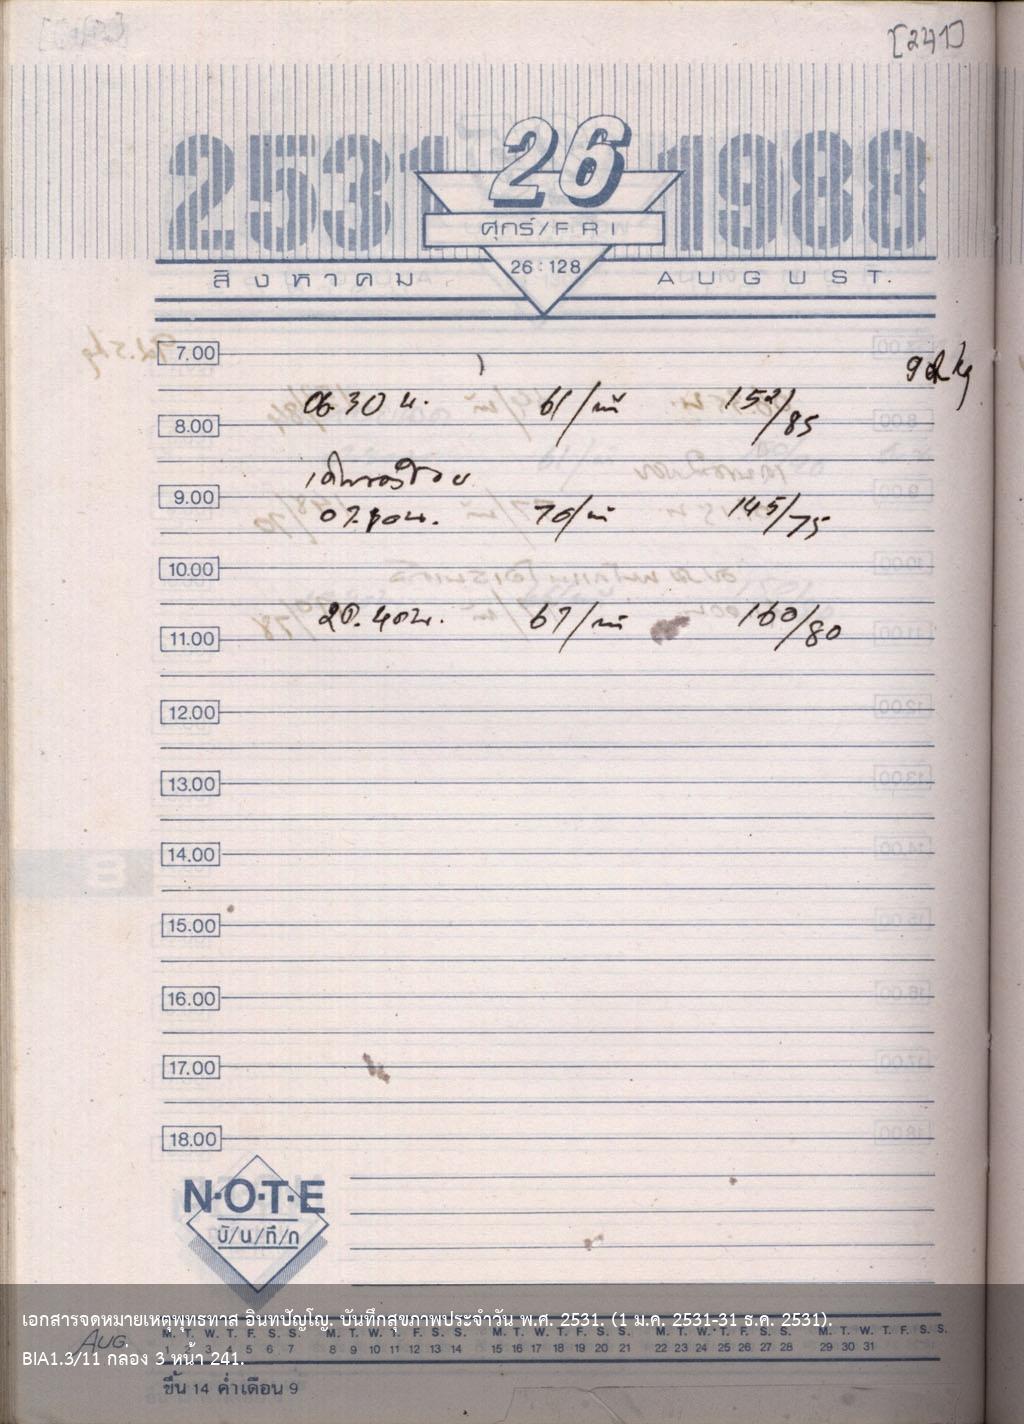 [241]
2531 26 1988
ศุกร์/FRI
26:128
สิงหาคม AUGUST.
7.00
06.30 น. 61/นที 152/85
8.00
9.00
07.40น. 70/นที 145/75
10.00
20.40น. 67/นที 160/80
11.00
12.00
13.00
14.00
15.00
16.00
17.00
18.00
N·O·T·E
บั/น/ทึ/ก
เอกสารจดหมายเหตุพุทธทาส อินทปัญโญ. บันทึกสุขภาพประจำวัน พ.ศ. 2531. (1 ม.ค. 2531-31 ธ.ค. 2531).
AUG. M. T. W. T. F. S. S. M. T. W. T. F. S. S. M. T. W. T. F. S. S. M. T. W. T. F. S. S. M. T. W. T. F. S. S.
1 2 3 4 5 6 7 8 9 10 11 12 13 14 15 16 17 18 19 20 21 22 23 24 25 26 27 28 29 30 31
BIA1.3/11 กล่อง 3 หน้า 241.
ขึ้น 14 ค่ำเดือน 9